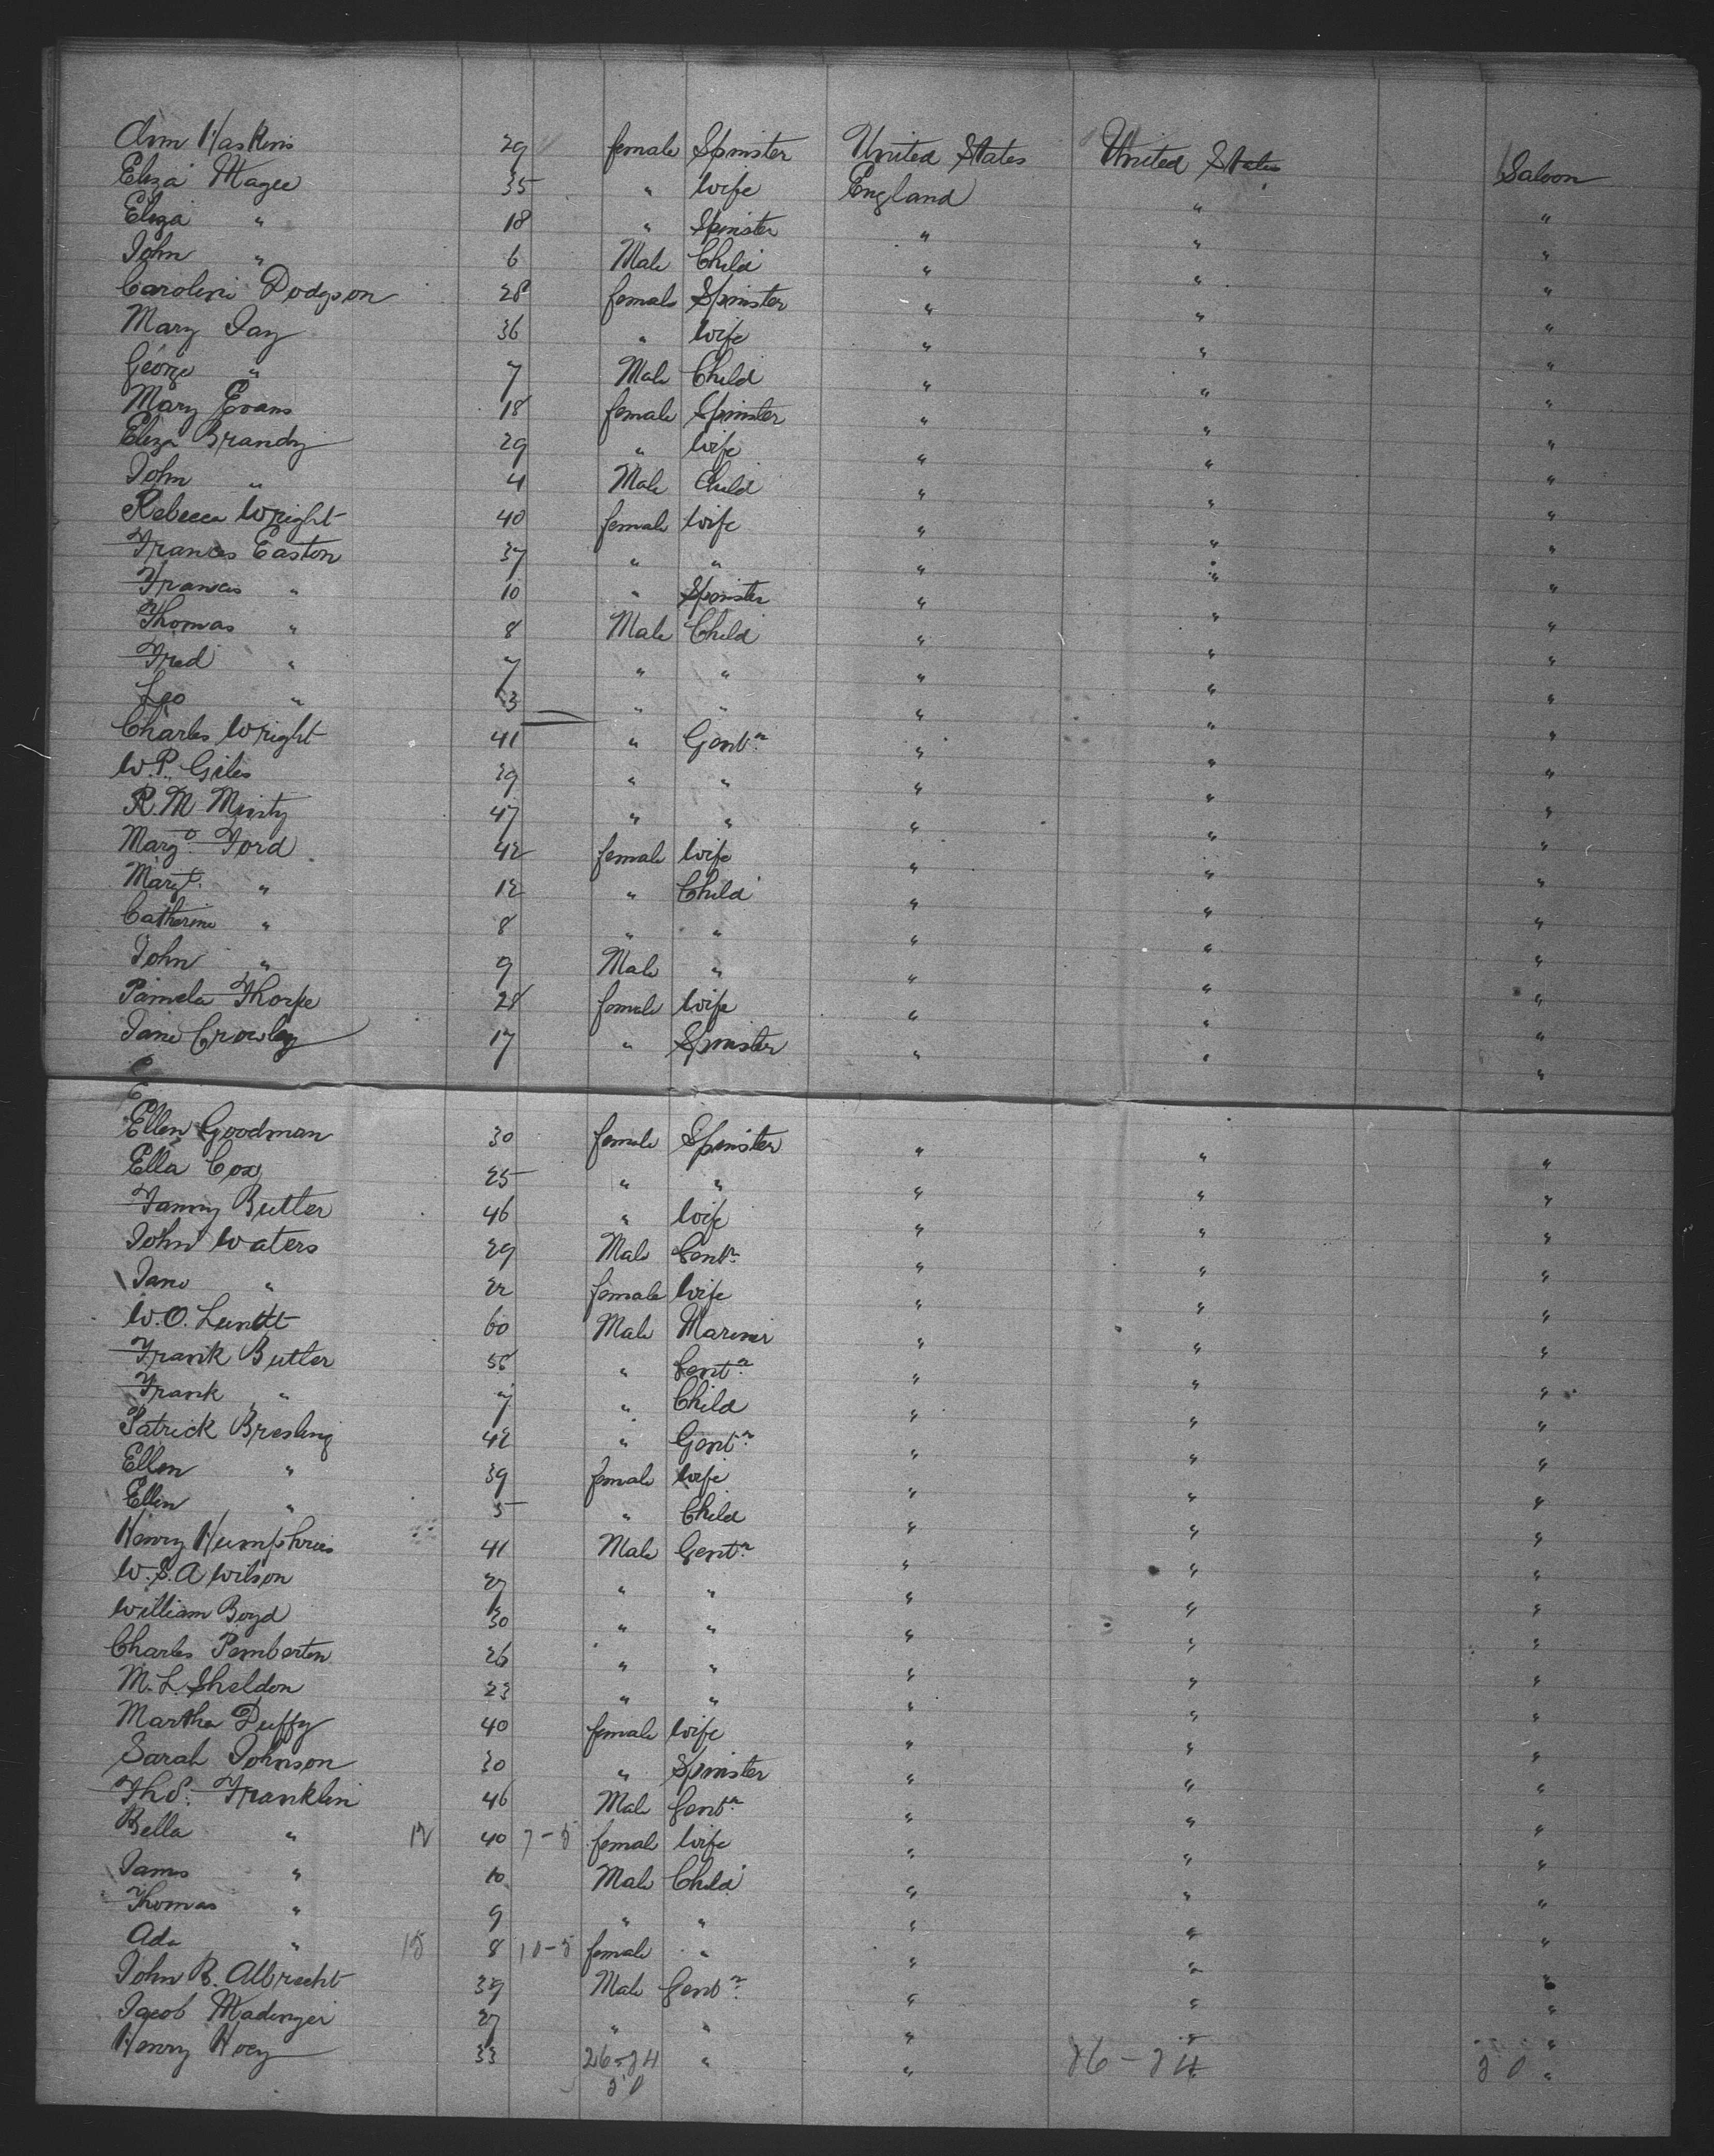 Ann Haskins 29 female Spinster United States United States Saloon
Eliza Magee 35 " wife England " "
Eliza " 18 " Spinster " " "
John " 6 Male Child " " "
Caroline Dodgson 28 female Spinster " " "
Mary Jay 36 " wife " " "
George " 7 Male Child " " "
Mary Evans 18 female Spinster " " "
Eliza Brandy 29 " wife " " "
John " 4 Male Child " " "
Rebecca Wright 40 female wife " " "
Frances Easton 37 " " " " "
Frances " 10 " Spinster " " "
Thomas " 8 Male Child " " "
Fred " 7 " " " " "
Leo " 3 " " " " "
Charles Wright 41 " Gentn " " "
W.P. Giles 39 " " " " "
R.M Minty 47 " " " " "
Margt Ford 42 female wife " " "
Margt " 12 " Child " " "
Catherine " 8 " " " " "
John " 9 Male " " " "
Pamela Thorpe 28 female wife " " "
Jane Crowley 17 " Spinster " " "
E
Ellen Goodman 30 female Spinster " " "
Ella Cox 25 " " " " "
Fanny Butler 46 " wife " " "
John Waters 29 Male Gentn " " "
Jane " 22 female wife " " "
W.O. Lundt 60 Male Mariner " " "
Frank Butler 58 " Gentn " " "
Frank " 7 " Child " " "
Patrick Bresling 42 " Gentn " " "
Ellen " 39 female wife " " "
Ellen " 5 " Child " " "
Henry Humphries 41 Male Gentn " " "
W.S.A Wilson 27 " " " " "
William Boyd 30 " " " " "
Charles Pemberton 26 " " " " "
M.L. Sheldon 23 " " " " "
Martha Duffy 40 female wife " " "
Sarah Johnson 30 " Spinster " " "
Thos. Franklin 46 Male Gentn " " "
Bella " 12 40 7-5 female wife " " "
James " 10 Male Child " " "
Thomas " 9 " " " " "
Ada " 15 8 10-5 female " " " "
John B. Albrecht 39 Male Gentn " " "
Jacob Madinger 27 " " " " "
Henry Hoey 33 26-24 " " 26-24 20 "
20